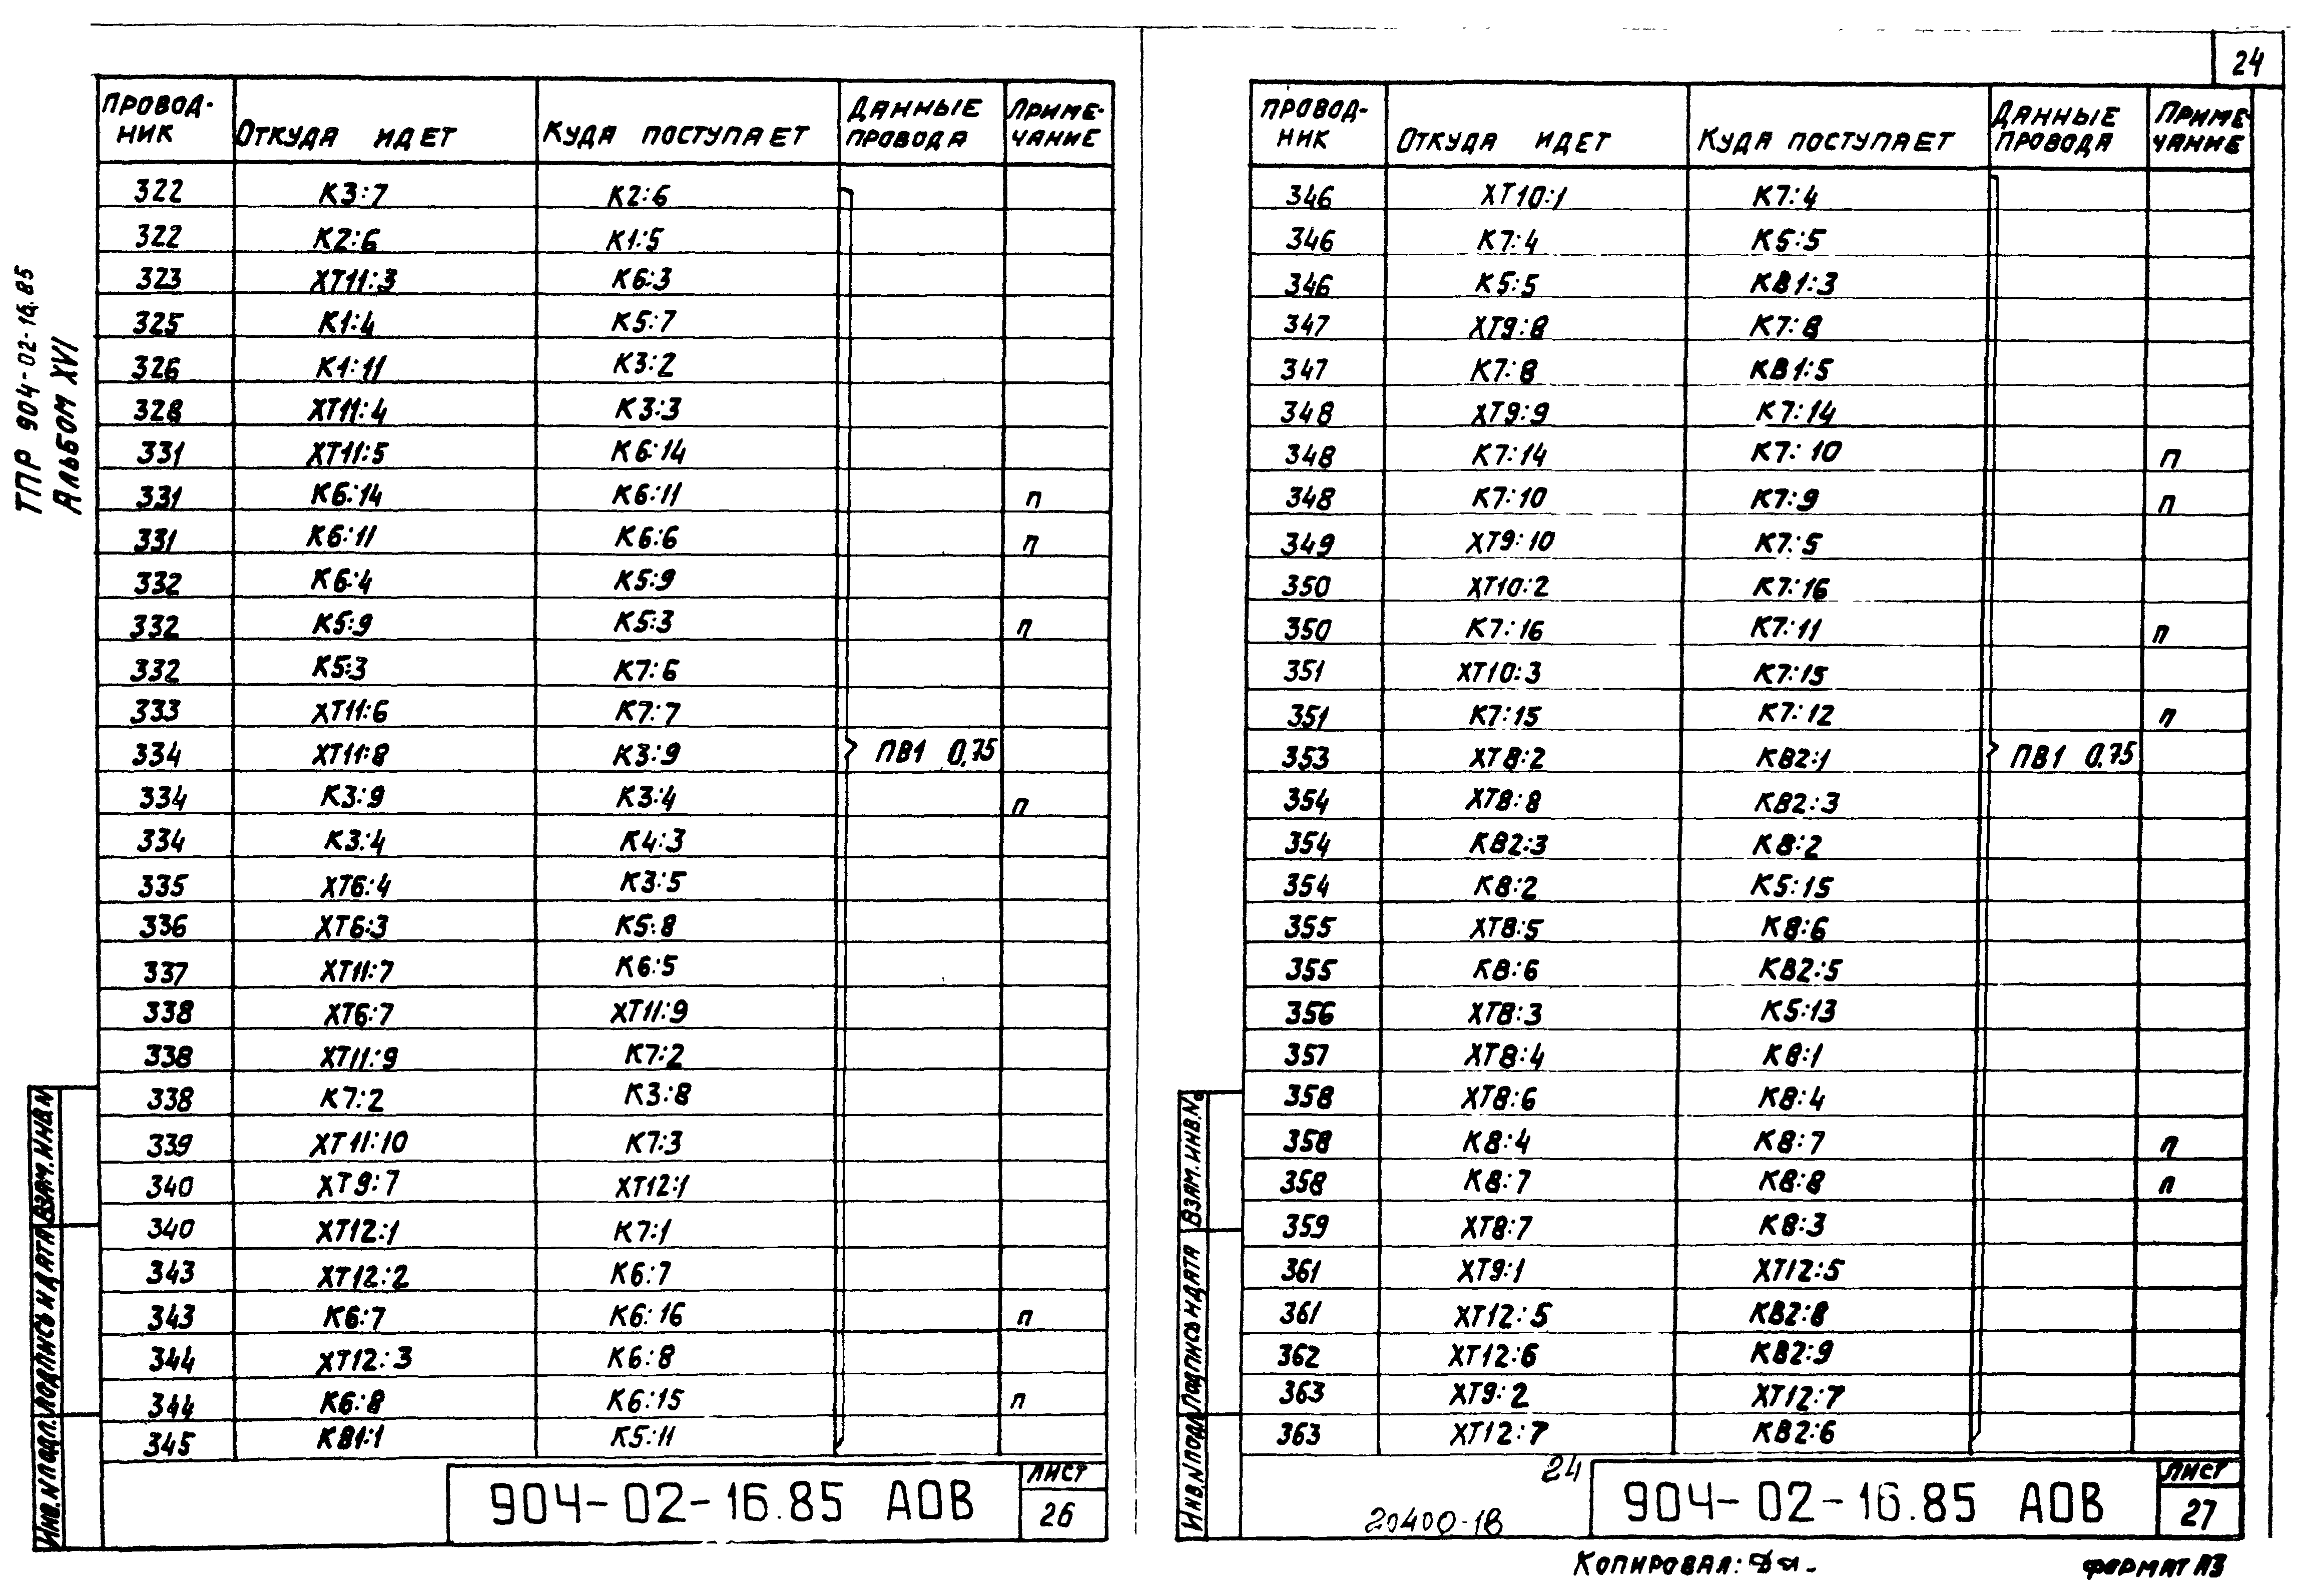 24
ТПР 904-02-16.85
Альбом XVI
Провод-ник Откуда идет Куда поступает Данные провода Приме-чание
322 К3:7 К2:6
322 К2:6 К1:5
323 ХТ11:3 К6:3
325 К1:4 К5:7
326 К1:11 К3:2
328 ХТ11:4 К3:3
331 ХТ11:5 К6:14
331 К6:14 К6:11 п
331 К6:11 К6:6 п
332 К6:4 К5:9
332 К5:9 К5:3 п
332 К5:3 К7:6
333 ХТ11:6 К7:7
334 ХТ11:8 К3:9 ПВ1 0,75
334 К3:9 К3:4 п
334 К3:4 К4:3
335 ХТ6:4 К3:5
336 ХТ6:3 К5:8
337 ХТ11:7 К6:5
338 ХТ6:7 ХТ11:9
338 ХТ11:9 К7:2
338 К7:2 К3:8
339 ХТ11:10 К7:3
340 ХТ9:7 ХТ12:1
340 ХТ12:1 К7:1
343 ХТ12:2 К6:7
343 К6:7 К6:16 п
344 ХТ12:3 К6:8
344 К6:8 К6:15 п
345 КВ1:1 К5:11
Инв.N подл. Подпись и дата Взам.инв.N
904-02-16.85 АОВ
Лист
26
Провод-ник Откуда идет Куда поступает Данные провода Приме-чание
346 ХТ10:1 К7:4
346 К7:4 К5:5
346 К5:5 КВ1:3
347 ХТ9:8 К7:8
347 К7:8 КВ1:5
348 ХТ9:9 К7:14
348 К7:14 К7:10 п
348 К7:10 К7:9 п
349 ХТ9:10 К7:5
350 ХТ10:2 К7:16
350 К7:16 К7:11 п
351 ХТ10:3 К7:15
351 К7:15 К7:12 п
353 ХТ8:2 КВ2:1 ПВ1 0,75
354 ХТ8:8 КВ2:3
354 КВ2:3 К8:2
354 К8:2 К5:15
355 ХТ8:5 К8:6
355 К8:6 КВ2:5
356 ХТ8:3 К5:13
357 ХТ8:4 К8:1
358 ХТ8:6 К8:4
358 К8:4 К8:7 п
358 К8:7 К8:8 п
359 ХТ8:7 К8:3
361 ХТ9:1 ХТ12:5
361 ХТ12:5 КВ2:8
362 ХТ12:6 КВ2:9
363 ХТ9:2 ХТ12:7
363 ХТ12:7 КВ2:6
Инв.N подл. Подпись и дата Взам.инв.N
24
20400-18
904-02-16.85 АОВ
Лист
27
Копировал:
Формат А3